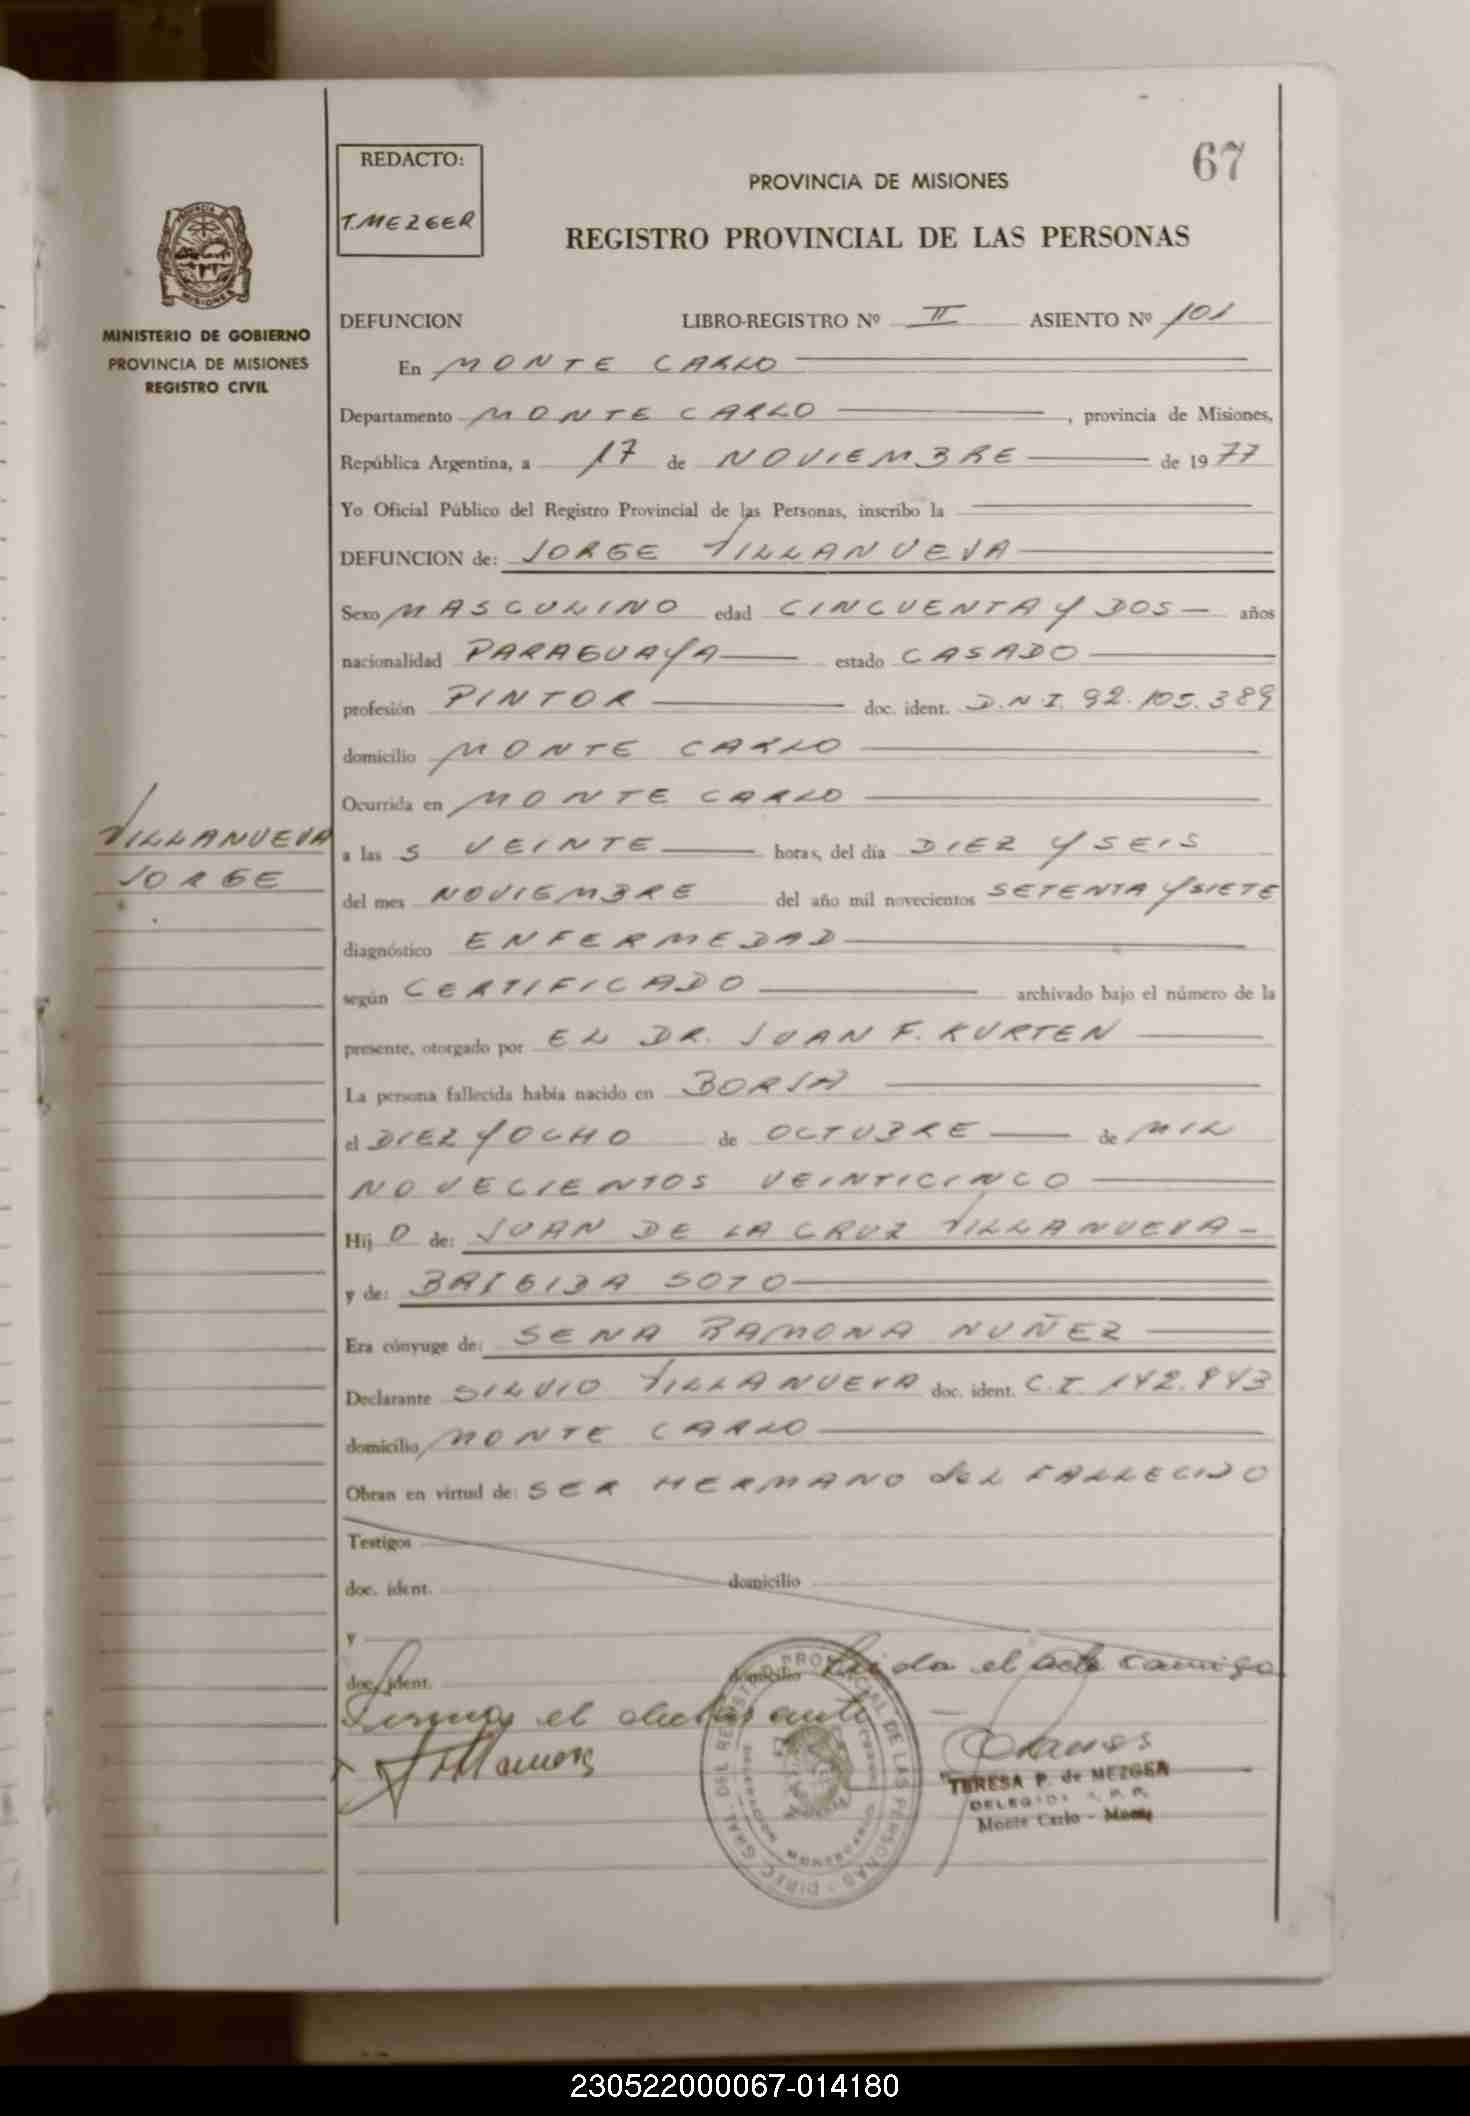 REDACTO:
T. MEZGER
67
PROVINCIA DE MISIONES
REGISTRO PROVINCIAL DE LAS PERSONAS
MINISTERIO DE GOBIERNO
PROVINCIA DE MISIONES
REGISTRO CIVIL
DEFUNCION LIBRO-REGISTRO Nº II ASIENTO Nº 101
En MONTE CARLO
Departamento MONTE CARLO , provincia de Misiones,
República Argentina, a 17 de NOVIEMBRE de 1977
Yo Oficial Público del Registro Provincial de las Personas, inscribo la
DEFUNCION de: JORGE VILLANUEVA
Sexo MASCULINO edad CINCUENTA Y DOS años
nacionalidad PARAGUAYA estado CASADO
profesión PINTOR doc. ident. D.N.I. 92.105.389
domicilio MONTE CARLO
Ocurrida en MONTE CARLO
VILLANUEVA
JORGE
a las S VEINTE horas, del día DIEZ Y SEIS
del mes NOVIEMBRE del año mil novecientos SETENTA Y SIETE
diagnóstico ENFERMEDAD
según CERTIFICADO archivado bajo el número de la
presente, otorgado por EL DR. JUAN F. KURTEN
La persona fallecida había nacido en BORJA
el DIEZ Y OCHO de OCTUBRE de MIL
NOVECIENTOS VEINTICINCO
Hij O de: JUAN DE LA CRUZ VILLANUEVA
y de: BRIGIDA SOTO
Era cónyuge de: SENA RAMONA NUÑEZ
Declarante SILVIO VILLANUEVA doc. ident. C.I. 142.843
domicilio MONTE CARLO
Obran en virtud de: SER HERMANO DEL FALLECIDO
Testigos
doc. ident. domicilio
y
doc. ident. domicilio Leida el acta conmigo
Firma el declarante
TERESA P. de MEZGER
Monte Carlo - Mnes
DIREC. GRAL. DEL REGISTRO PROVINCIAL DE LAS PERSONAS
230522000067-014180